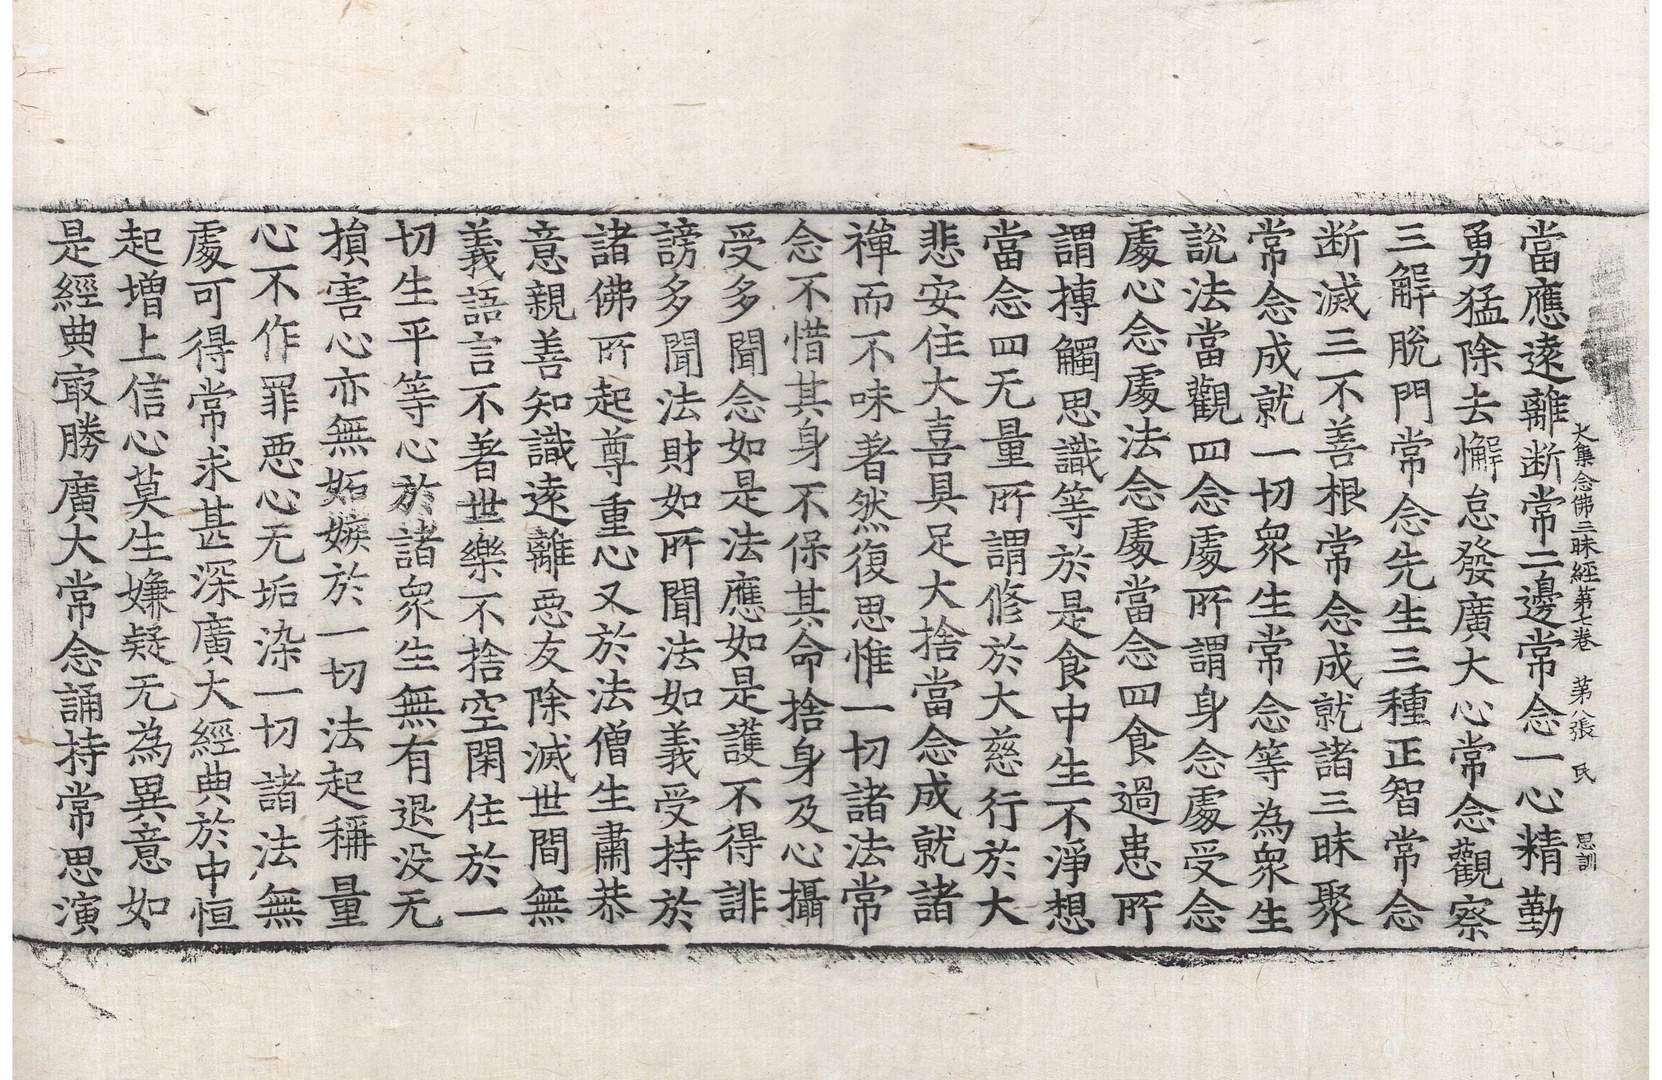 大集念佛三昧經第七卷　第八張　民　思訓
當應遠離断常二邊常念一心精勤
勇猛除去懈怠發廣大心常念觀察
三解脫門常念先生三種正智常念
断滅三不善根常念成就諸三昧聚
常念成就一切衆生常念等為衆生
說法當觀四念處所謂身念處受念
處心念處法念處當念四食過患所
謂摶觸思識等於是食中生不淨想
當念四无量所謂修於大慈行於大
悲安住大喜具足大捨當念成就諸
禅而不味著然復思惟一切諸法常
念不惜其身不保其命捨身及心攝
受多聞念如是法應如是護不得誹
謗多聞法財如所聞法如義受持於
諸佛所起尊重心又於法僧生肅恭
意親善知識遠離惡友除滅世間無
義語言不著世樂不捨空閑住於一
切生平等心於諸衆生無有退没无
損害心亦無妬嫉於一切法起稱量
心不作罪惡心无垢染一切諸法無
處可得常求甚深廣大經典於中恒
起增上信心莫生嫌疑无為異意如
是經典㝡勝廣大常念誦持常思演